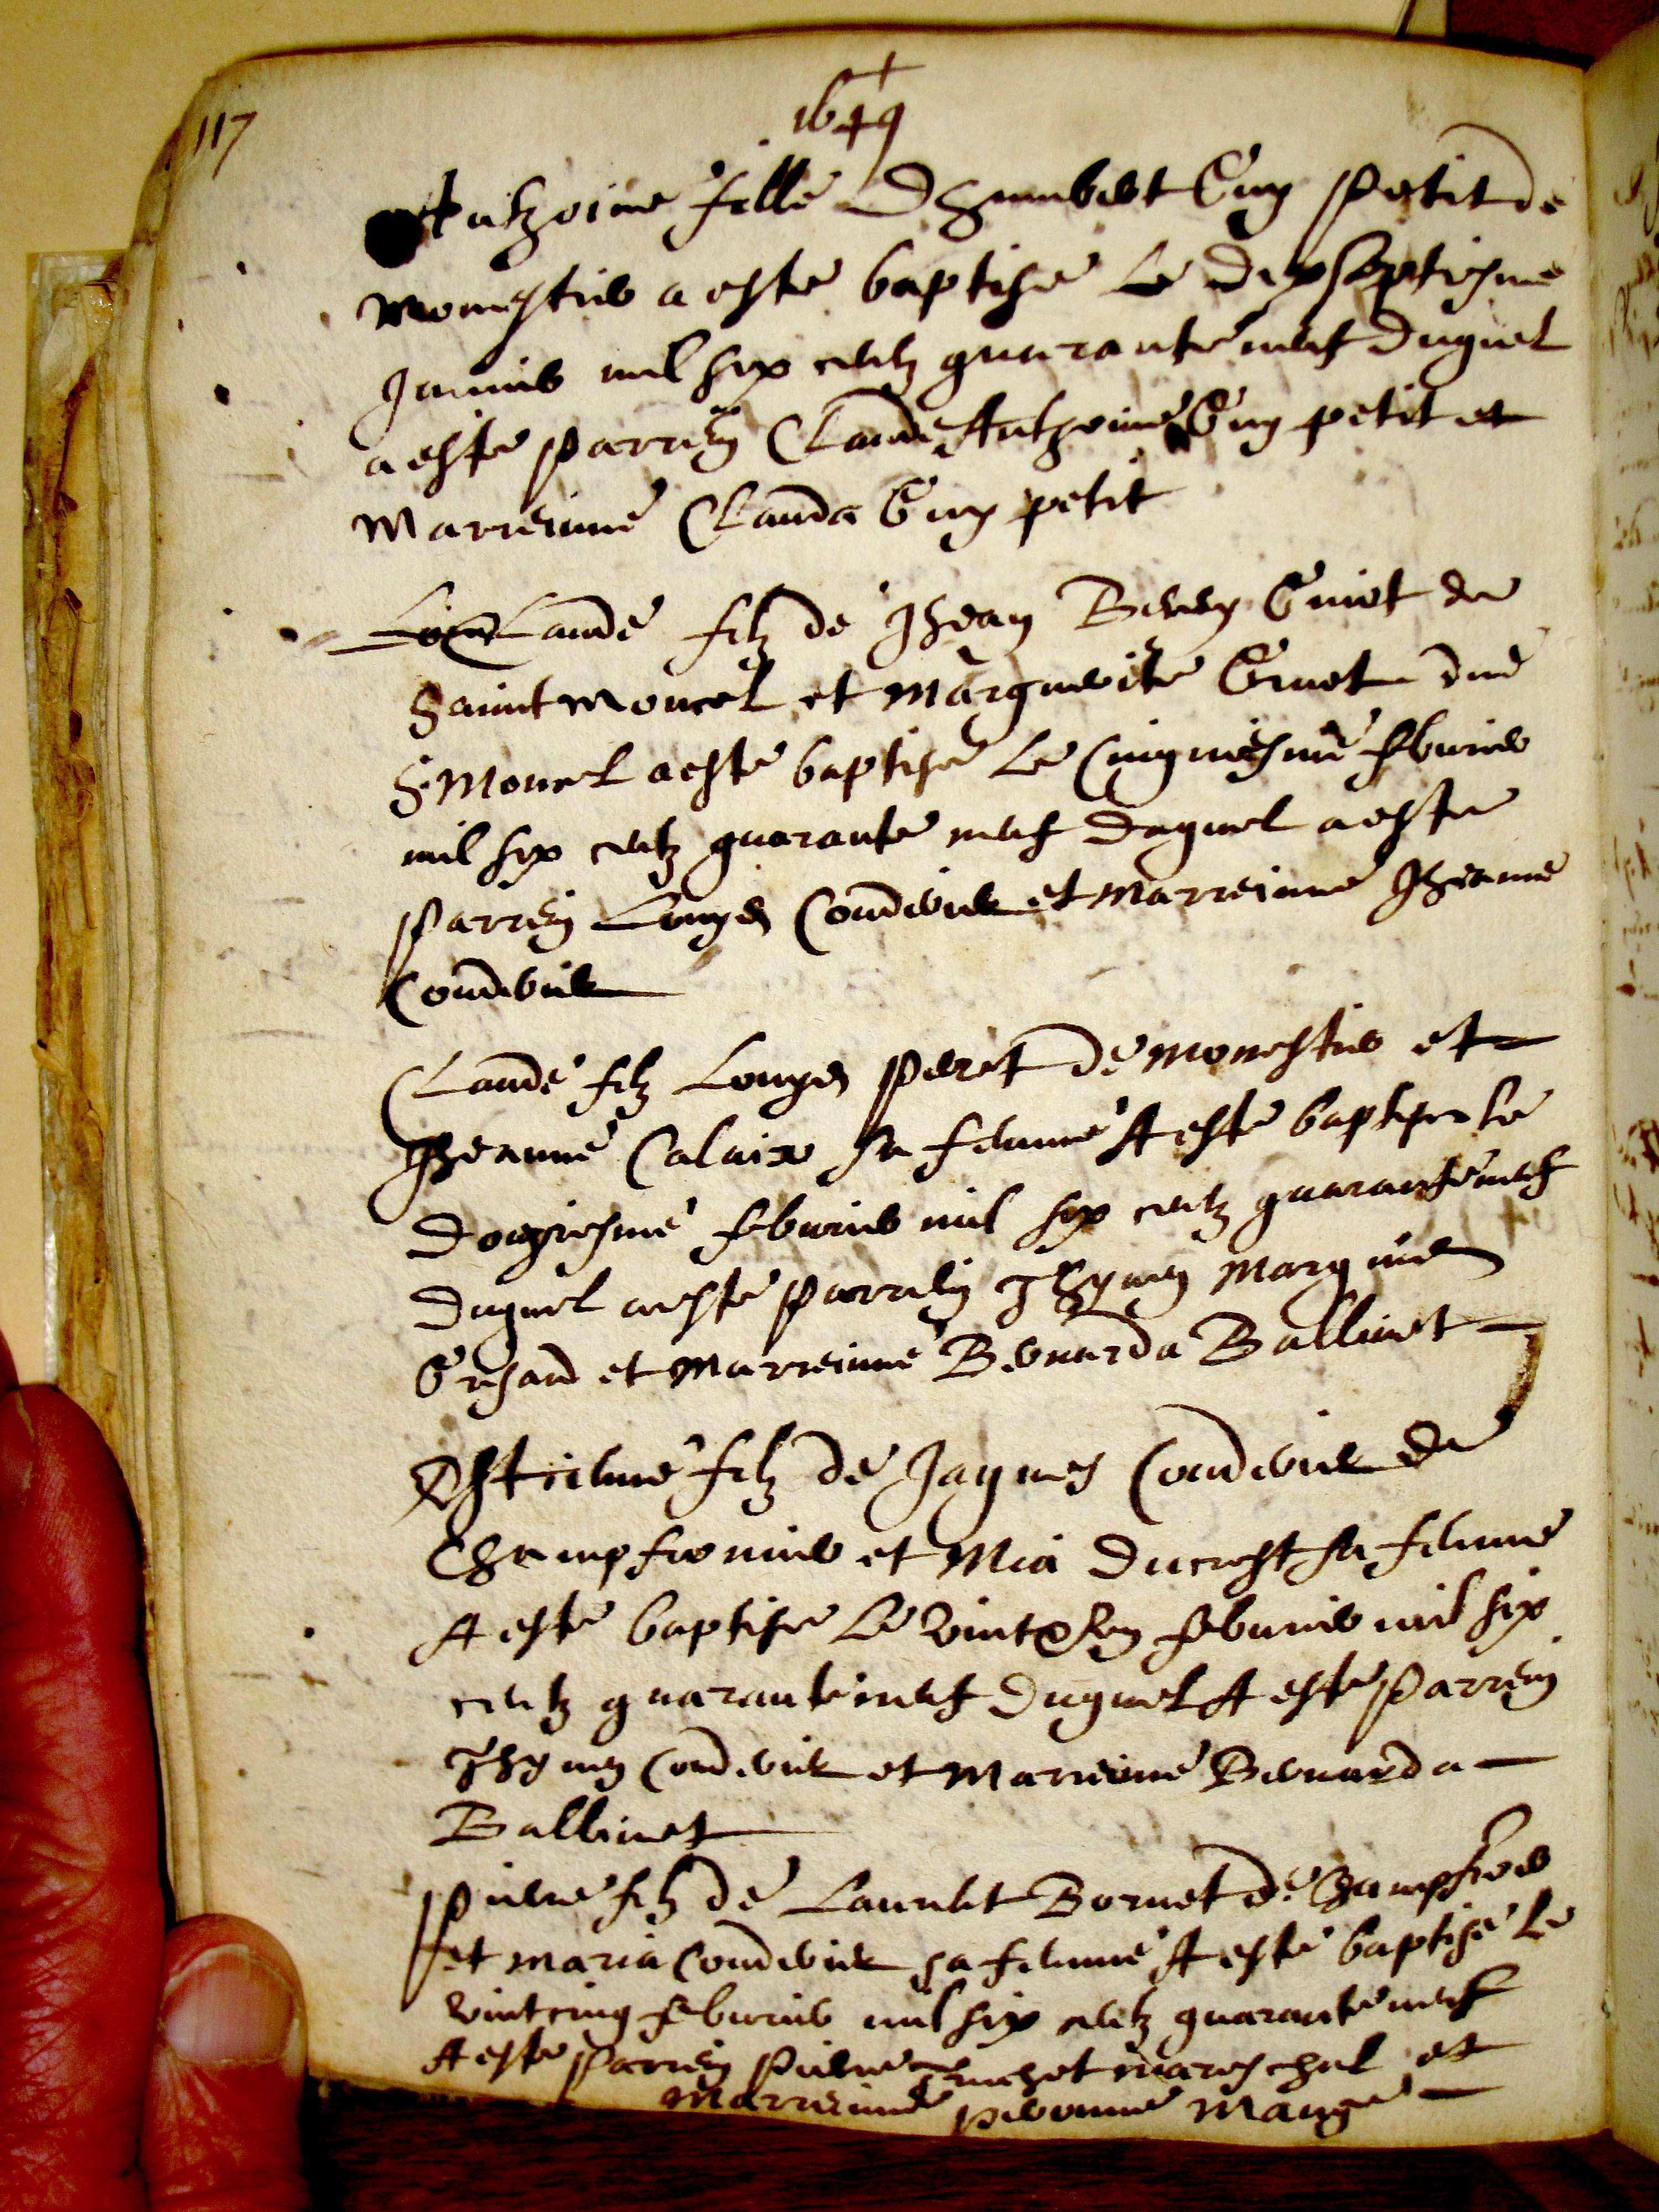 117
1649
Anthoine fille D Humbert Guy petit de
monestier a este baptise Le dixseptiesme
Janvier mil six centz quarante neuf duquel
a este parrein Claude Anthoine Guy petit et
Marreinne Clauda Guy petit
Claude filz de Jhean Guiot de
Saint moucel et Marguerite Gruet dud
S. Moucel a este baptise Le Cinquiesme febvrier
mil six centz quarante neuf duquel a este
parrein Louys Coudurier et Marreinne Jheanne
Coudurier
Claude filz Louys peret de monestier et
Jheanne Calaix sa femme A este baptise le
douziesme febvrier mil six centz quarante neuf
duquel a este parrein Thyven
et Marreinne Bernarda Ballivet
Estienne filz de Jaques Coudurier de
Champfromier et Mia Ducrest sa femme
A este baptise Le vint febvrier mil six
centz quarante neuf duquel A este parrein
Thyven Coudurier et Marreinne Bernarda
Ballivet
pierre filz de Laurent Bornet de Champfro
et maria Coudurier sa femme A este baptise le
vintcinq febvrier mil six centz quarante neuf
A este parrein pierre mareschal et
Marreinne pernonne